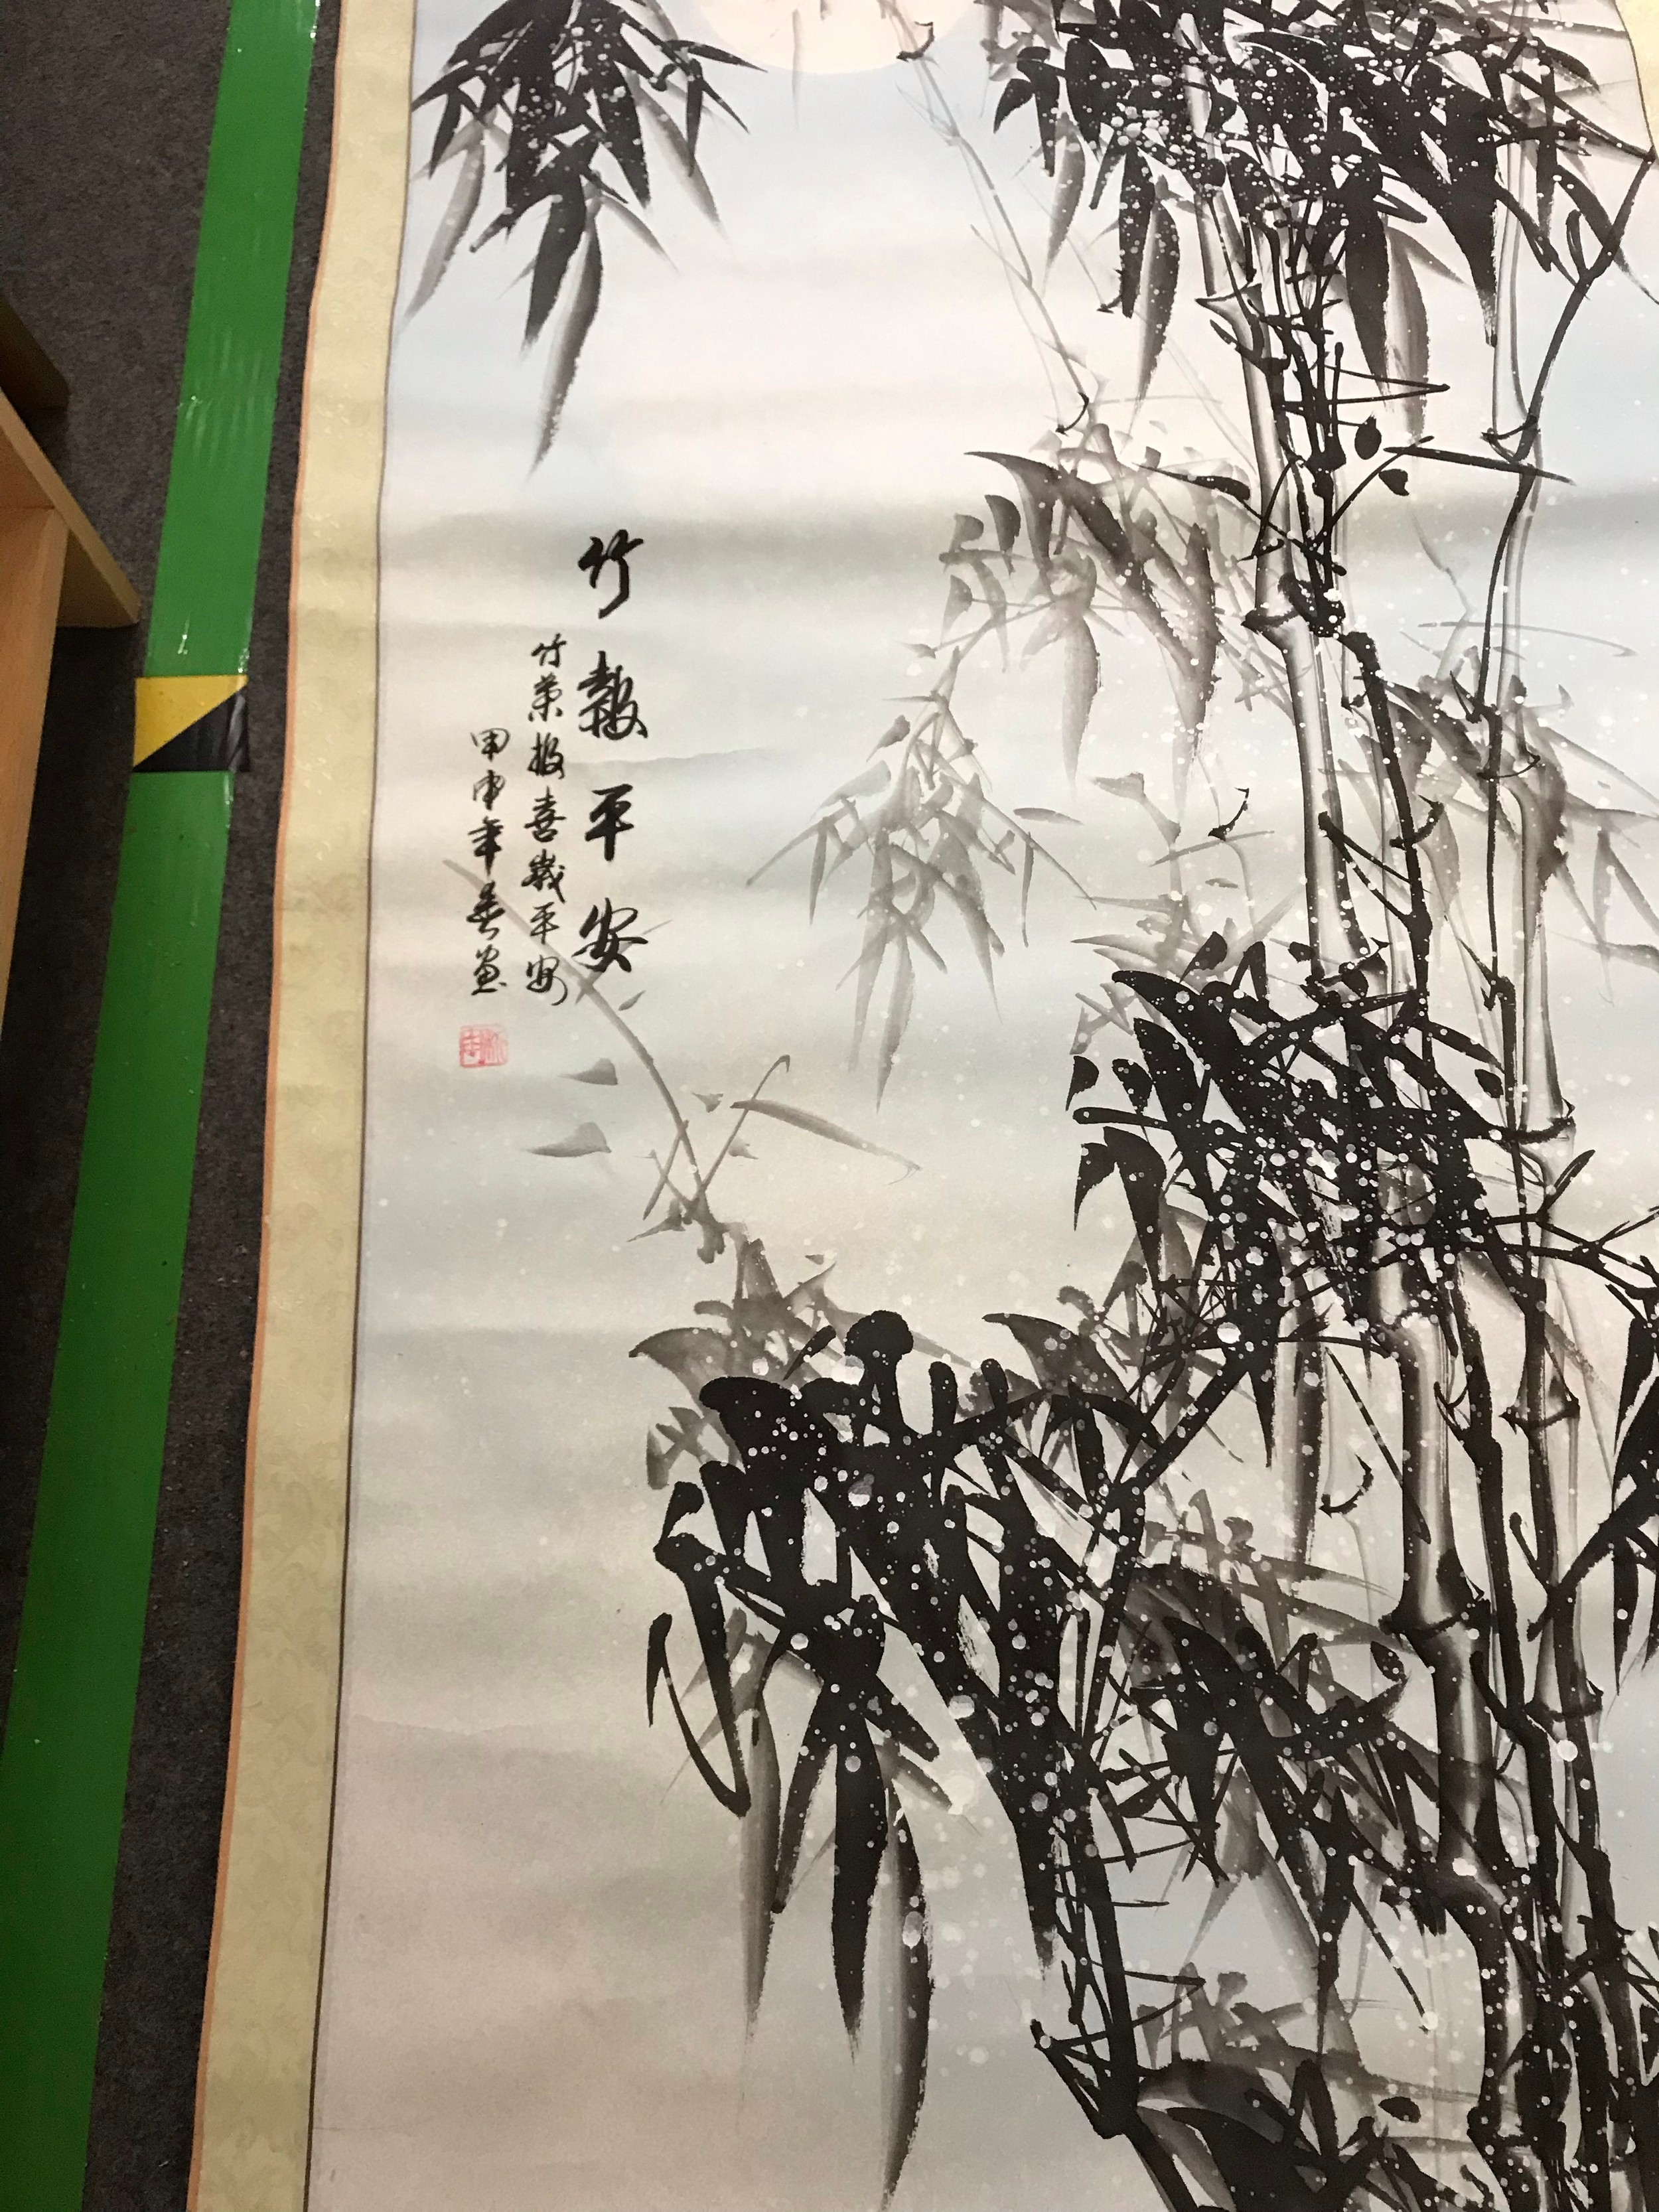 竹報平安
竹葉報喜歲平安
甲申年春画